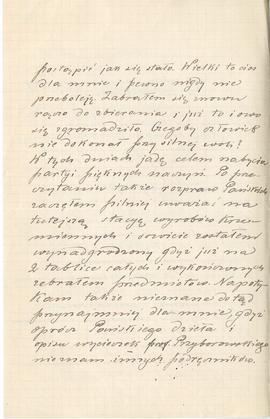 postąpić jak się stało. Wielki to cios
dla mnie i pewno nigdy nie
przeboleję. Zabrałem się znowu
raźno do zbierania i już to i owo
się zgromadziło. Czegoby człowiek
nie dokonał przy silnej woli?
W tych dniach jadę celem nabycia
partyi pięknych naczyń. Po prze
czytaniu także rozpraw Pańskich
zacząłem pilniej uważać na
tutejszą stacyę wyrobów krze-
miennych i sowicie zostałem
wynadgrodzony gdyż już na
2 tablice całych i wykończonych
zebrałem przedmiotów. Napoty-
kam także nieznane dotąd
przynajmniej dla mnie, gdyż
oprócz Pańskiego dzieła i
opisu wycieczek prof. Przyborowskiego
nieznam innych podręczników.